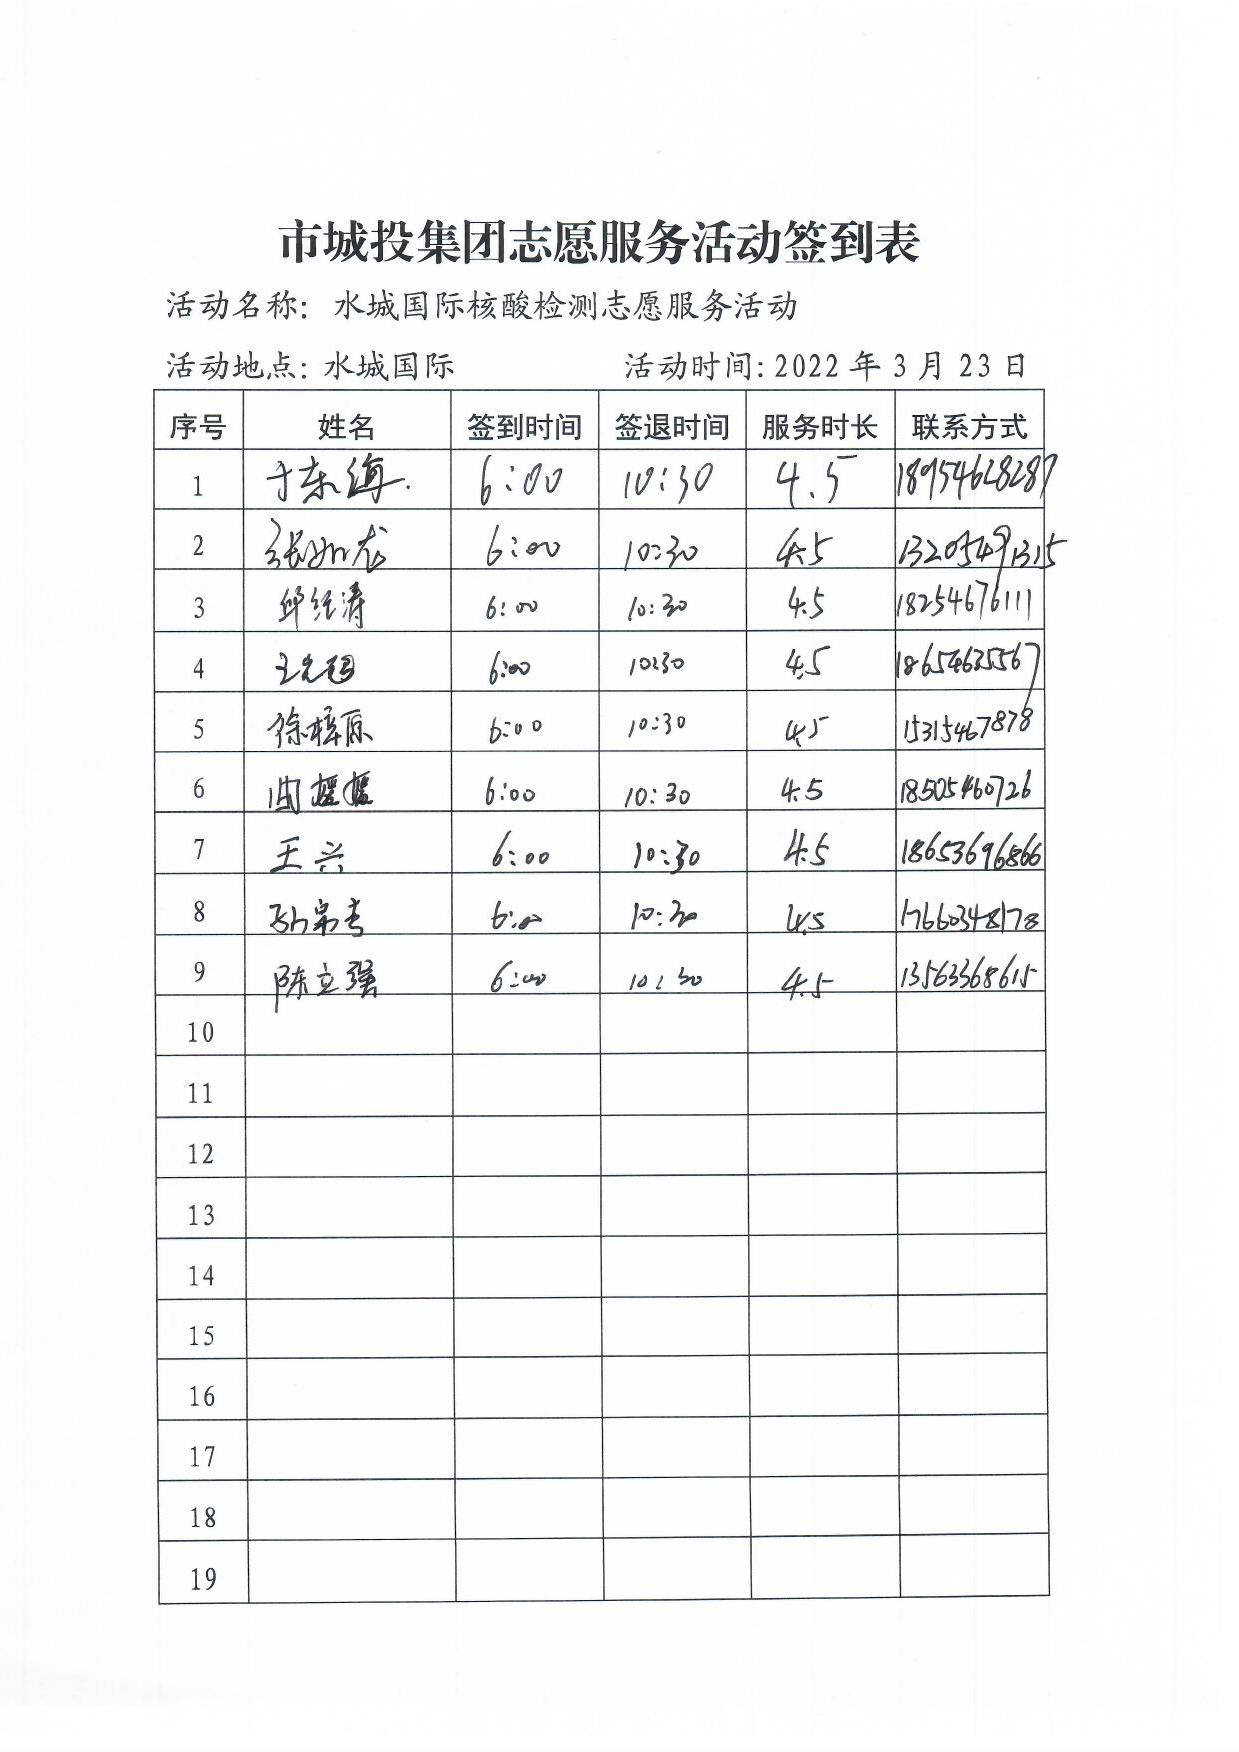 市城投集团志愿服务活动签到表
活动名称：水城国际核酸检测志愿服务活动
活动地点：水城国际 活动时间：2022 年 3 月 23 日
序号 姓名 签到时间 签退时间 服务时长 联系方式
1 于东海 6:00 10:30 4.5 18954628287
2 张如龙 6:00 10:30 4.5 13205491315
3 邱经涛 6:00 10:30 4.5 18254676111
4 6:00 10:30 4.5 18654635567
5 徐梓原 6:00 10:30 4.5 15315467878
6 6:00 10:30 4.5 18505460726
7 王兴 6:00 10:30 4.5 18653696866
8 6:00 10:30 4.5 17660348178
9 陈立强 6:00 10:30 4.5 13563368615
10
11
12
13
14
15
16
17
18
19